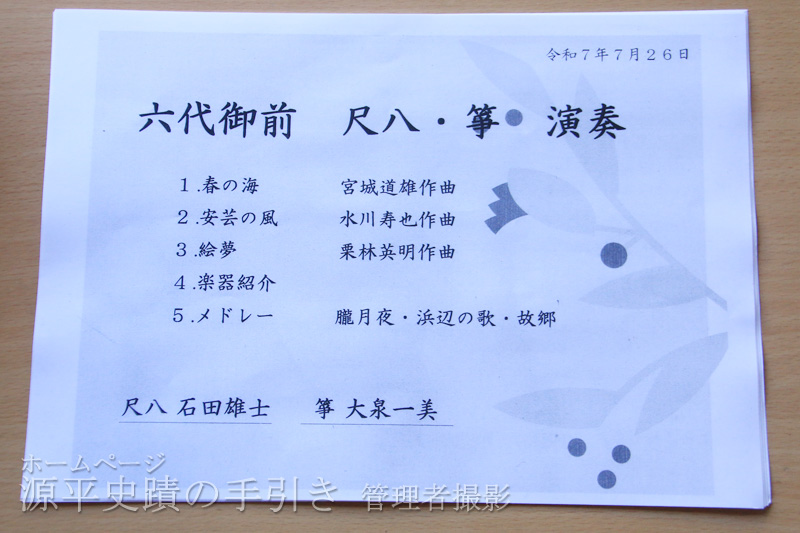 令和７年７月２６日
六代御前　尺八・箏　演奏
１.春の海　宮城道雄作曲
２.安芸の風　水川寿也作曲
３.絵夢　栗林英明作曲
４.楽器紹介
５.メドレー　朧月夜・浜辺の歌・故郷
尺八 石田雄士　箏 大泉一美
ホームページ
源平史蹟の手引き　管理者撮影